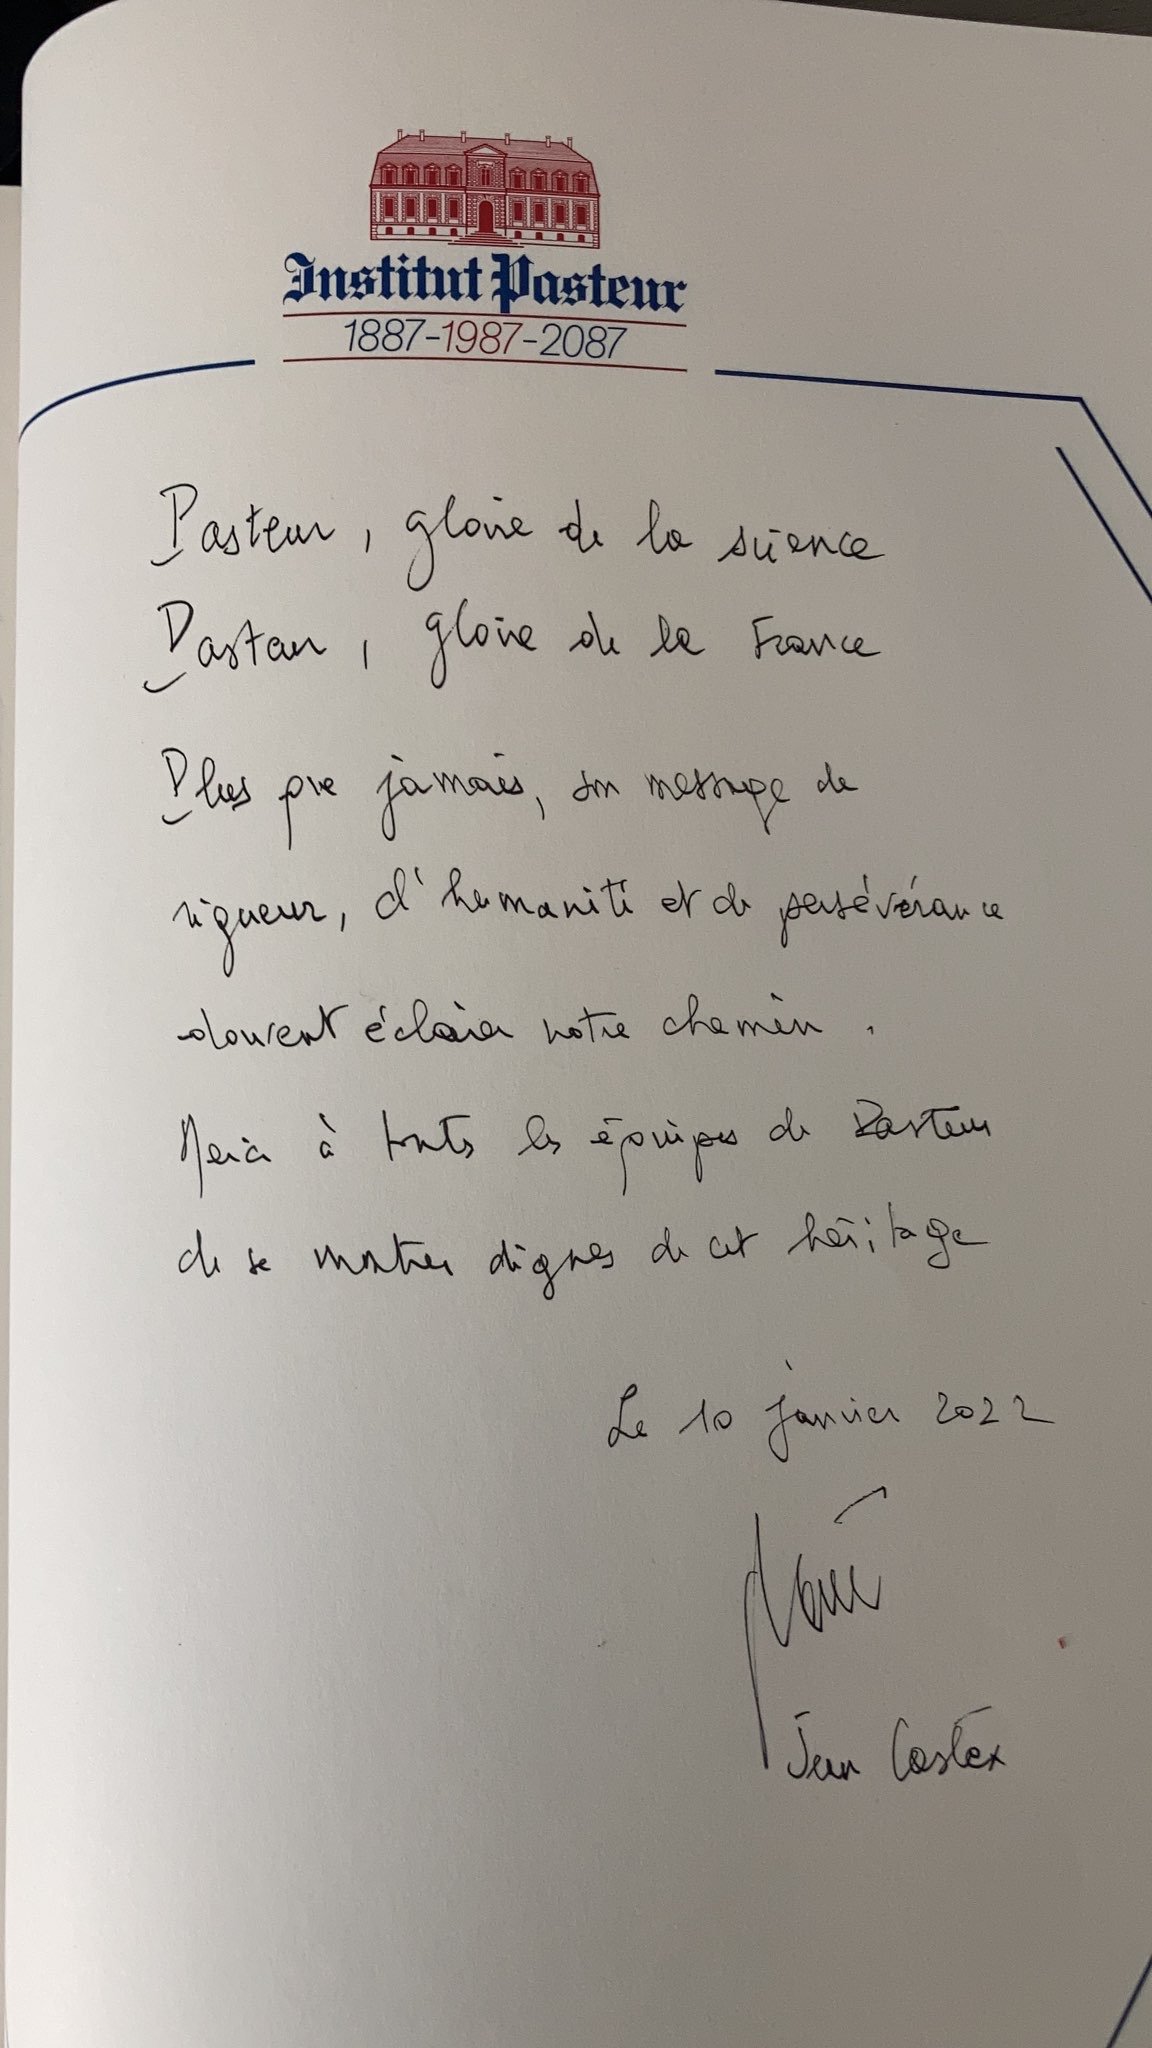 Institut Pasteur
1887-1987-2087
Pasteur, gloire de la science
Pasteur, gloire de la France
Plus que jamais, son message de
rigueur, d'humanité et de persévérance
doivent éclairer notre chemin.
Merci à toutes les équipes de Pasteur
de se montrer dignes de cet héritage
Le 10 janvier 2022
Jean Castex